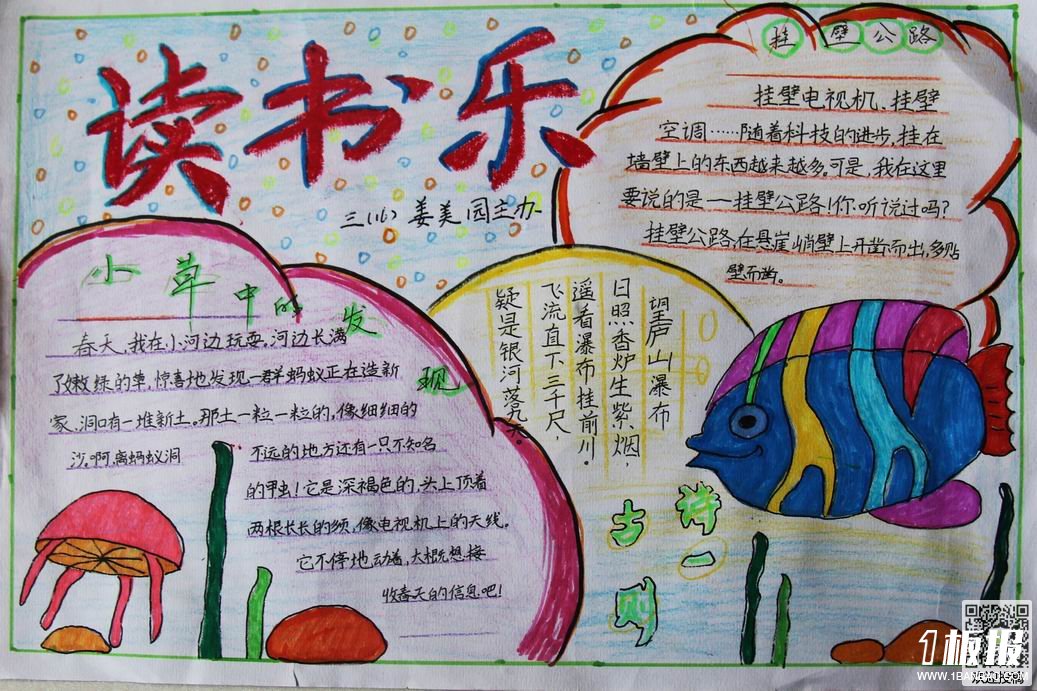 读书乐
三(16)姜美园主办
挂壁公路
挂壁电视机、挂壁
空调……随着科技的进步,挂在
墙壁上的东西越来越多。可是,我在这里
要说的是一挂壁公路!你听说过吗?
挂壁公路,在悬崖峭壁上开凿而出,多贴
壁而凿。
小草中的发现
春天,我在小河边玩耍,河边长满
了嫩绿的草,惊喜地发现一群蚂蚁正在造新
家、洞口有一堆新土。那土一粒一粒的,像细细的
沙。啊,离蚂蚁洞
不远的地方还有一只不知名
的甲虫!它是深褐色的,头上顶着
两根长长的须,像电视机上的天线。
它不停地动着,大概想接
收春天的信息吧!
望庐山瀑布
日照香炉生紫烟,
遥看瀑布挂前川。
飞流直下三千尺,
疑是银河落九天。
古诗一则
1板报
WWW.1BANBAO.COM
欢迎投稿